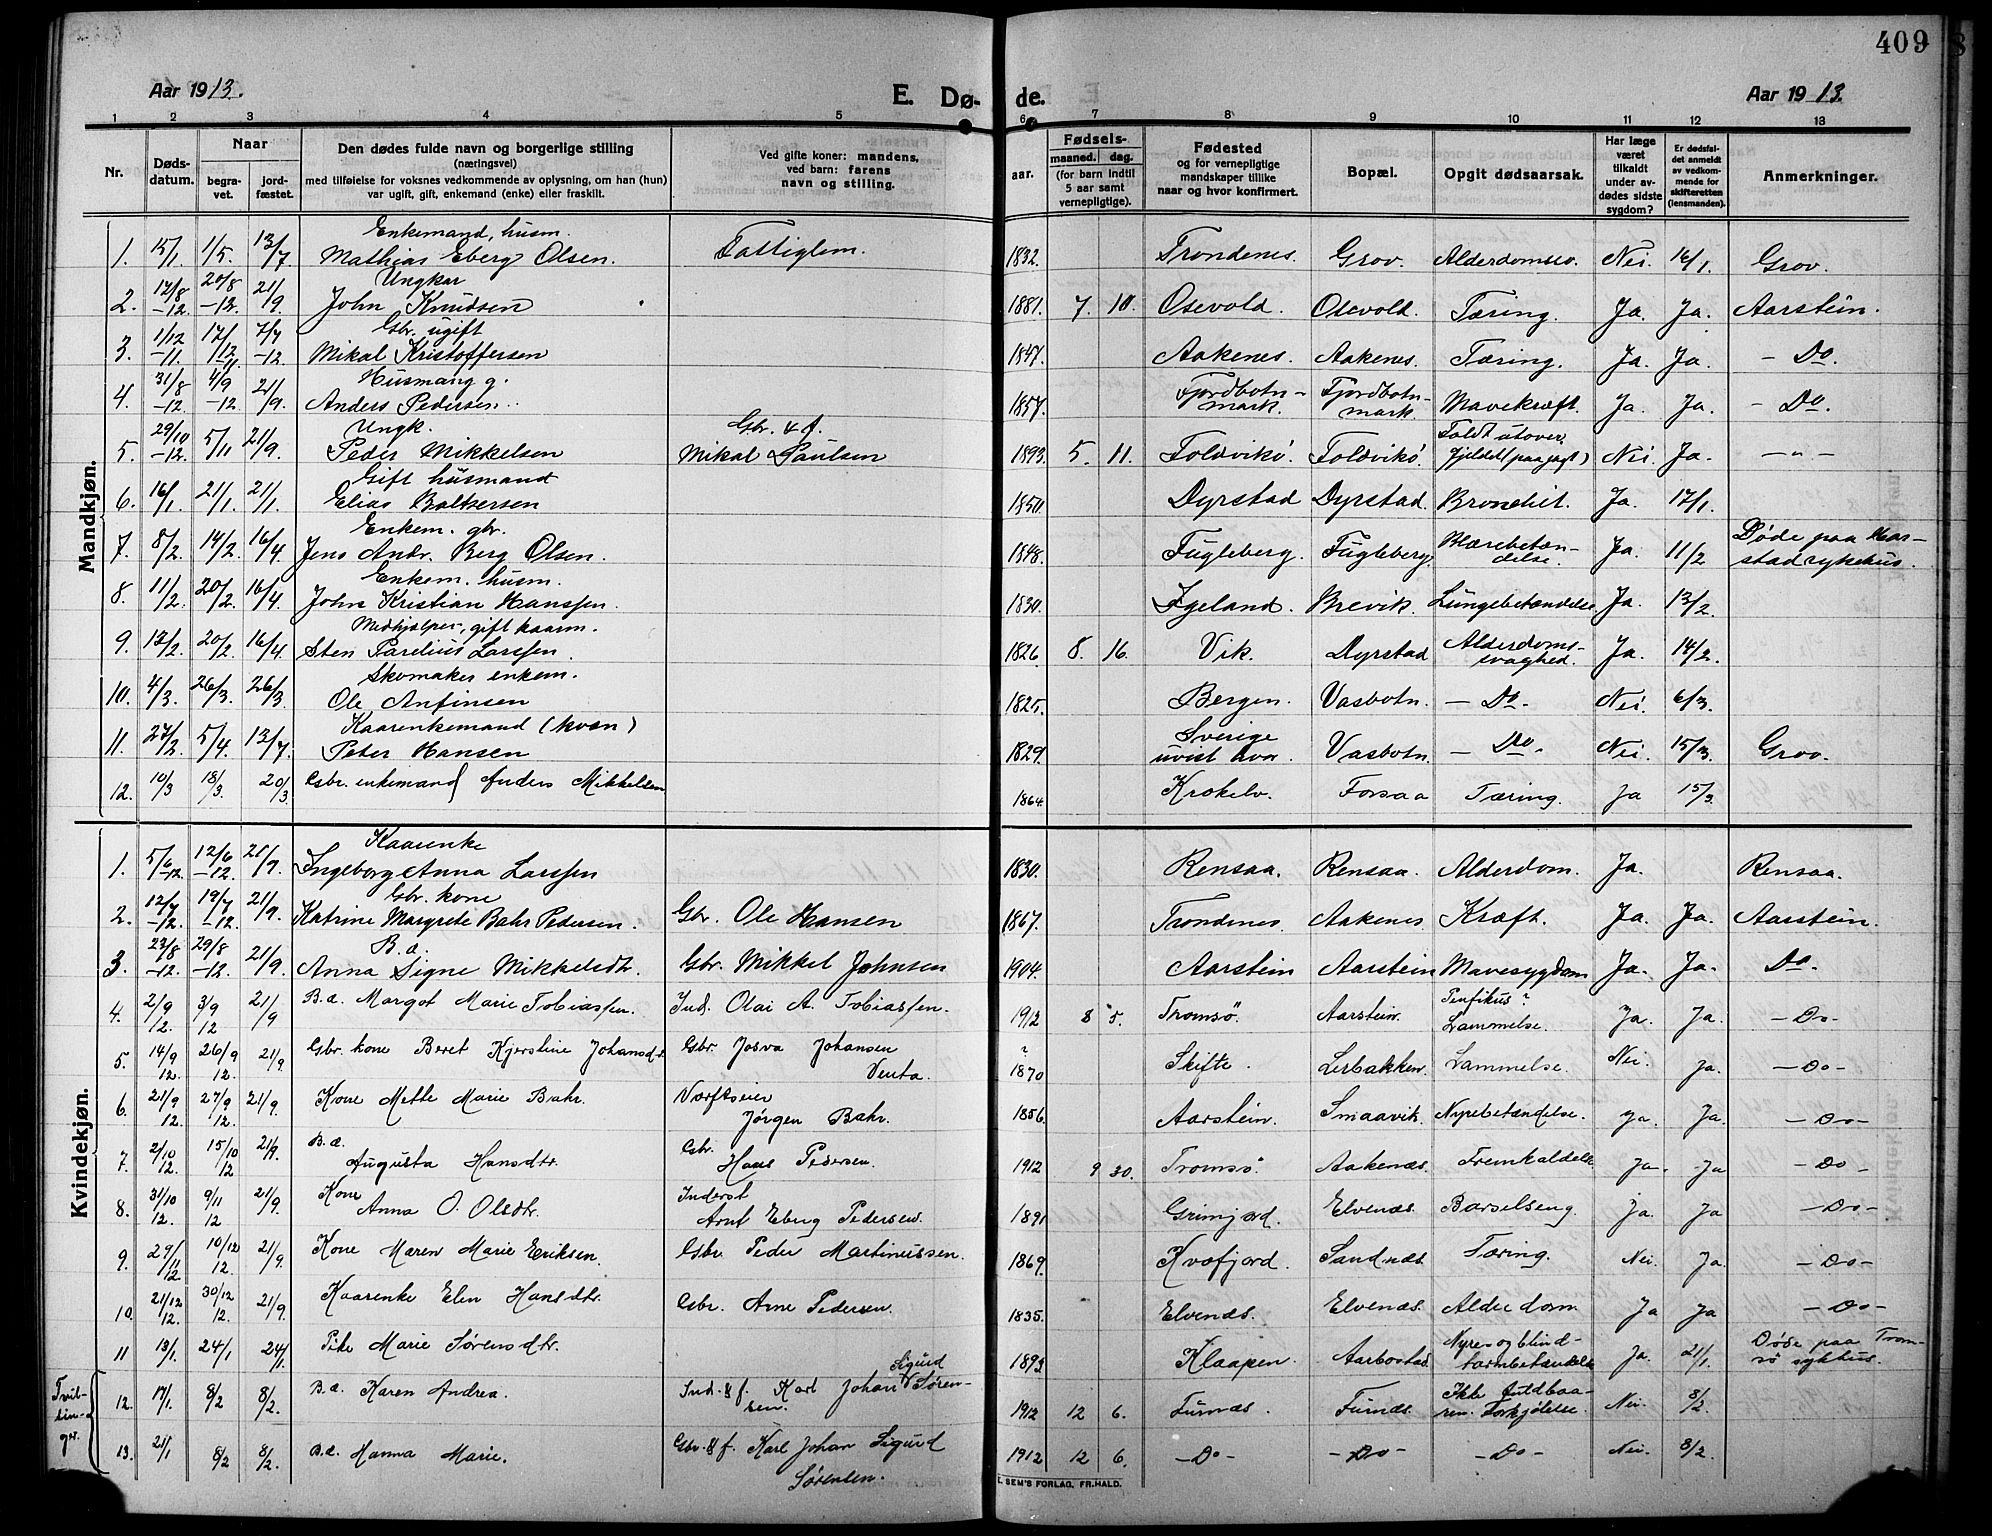 409
Aar 1913.
E. Dø- de.
Aar 1913.
1 2 3 4 5 6 7 8 9 10 11 12 13
Nr. Døds-datum. Naar begra-vet. jord-fæstet. Den dødes fulde navn og borgerlige stilling (næringsvei) med tilføielse for voksnes vedkommende av oplysning, om han (hun) var ugift, gift, enkemand (enke) eller fraskilt. Ved gifte koner: mandens, ved barn: farens navn og stilling. Fødsels- aar. maaned. dag. (for barn indtil 5 aar samt vernepligtige). Fødested og for vernepligtige mandskaper tillike naar og hvor konfirmert. Bopæl. Opgit dødsaarsak. Har læge været tilkaldt under av-dødes sidste sygdom? Er dødsfal-det anmeldt av vedkom-mende for skifteretten (lensmanden). Anmerkninger.
Mandkjøn.
1. 15/1. 1/5. 13/7 Enkemand, husm. Mathias Eberg Olsen. Fattiglem. 1832. Trondenes. Grov. Nei. 16/1. Grov.
2. 12/8 -12. 20/8 -12. 21/9. Ungkar John Knudsen 1881. 7. 10. Osevold. Osevold. Tæring. Ja. Ja. Aarstein.
3. 1/12 -11. 17/12 -11. 7/7 -12. Gbr. ugift Mikal Kristoffersen 1847. Aakenes. Aakenes. Tæring. Ja. Ja. - Do.
4. 31/8 -12. 4/9 -12. 21/9. Husmand g. Anders Pedersen. 1857. Fjordbotn-mark. Fjordbotn-mark. Mavekræft. Ja. Ja. - Do.
5. 29/10 -12. 5/11 21/9. Ungk. Peder Mikkelsen Gbr. & f. Mikal Paulsen 1893. 5. 11. Foldvik. Foldvik. Faldt utover fjeldet (paa jagt) Nei. Ja. - " -
6. 16/1. 21/1. 21/1. Gift husmand Elias Baltsersen 1850. Dyrstad Dyrstad. Bronchit. Ja. 17/1.
7. 8/2. 14/2. 16/4. Enkem. gbr. Jens Andr. Berg Olsen. 1848. Fugleberg. Fugleberg. Blærebetæn-delse. Ja. 11/2 Døde paa Har-stad sykehus.
8. 11/2. 20/2. 16/4. Enkem. husm. John Kristian Hanssen. 1830. Igeland. Brevik. Lungebetændelse Ja. 13/2.
9. 12/2. 20/2. 16/4. Medhjælper, gift kaarm. Sten Parelius Larssen. 1826. 8. 16. Vik. Dyrstad Alderdoms-svaghed. Ja. 14/2.
10. 4/3. 26/3. 26/3. Skomaker enkem. Ole Anfinsen 1825. Bergen. Vasbotn. - Do. Nei. 6/3.
11. 27/2. 5/4. 13/7. Kaarenkemand (kvæn) Peter Hansen 1829. Sverige uvist hvor. Vasbotn. - Do. Nei. 15/3. Grov.
12. 10/3 18/3. 20/3. Gbr. enkemand Anders Mikkelsen 1864. Krokelv. Forsaa Tæring. Ja 15/3.
Kvindekjøn.
1. 5/6 -12. 12/6 -12. 21/9. Kaarenke Ingeborg Anna Larssen 1830. Rensaa. Rensaa. Alderdom. Ja. Rensaa.
2. 12/7 -12. 19/7 -12. 21/9. Gbr. kone Katrine Margrete Bahr Pedersen. Gbr. Ole Hansen 1867. Trondenes. Aakenes. Kræft. Ja. Ja. Aarstein.
3. 23/8 -12. 29/8 -12. 21/9. B. æ. Anna Signe Mikkelsdtr. Gbr. Mikkel Johnsen 1904. Aarstein Aarstein Mavesygdom Ja. Ja. Do.
4. 2/9 12. 3/9 12 21/9 B. æ. Margot Marie Tobiassen. Ind. Olai A. Tobiassen. 1912 8 5. Tromsö. Aarstein. Penfikus? Lammelse. Ja. Ja. - Do -
5. 14/9 12. 26/9 12. 21/9. Gbr. kone Beret Kjerstine Johansdtr. Gbr. Josva Johansen Venta. ? 1870 Skifte. Lerbakken. Lammelse. Nei. Ja. - Do -
6. 21/9 12. 27/9 12. 21/9. Kone Mette Marie Bahr. Værftseier Jørgen Bahr. 1856. Aarstein. Smaavik. Nyrebetændelse. Ja. Ja - Do -
7. 2/10 12. 15/10 12 21/9. B. æ. Augusta Hansdtr. Gbr. Hans Pedersen. 1912 9 30. Tromsø. Aakenæs. Fremkaldelse Ja. Ja - Do -
8. 31/10 12. 9/11 12 21/9. Kone Anna O. Olsdtr. Inderst Arnt Eberg Pedersen. 1891 Grimjord. Elvenæs. Barselseng. Ja. Ja - Do -
9. 29/11 12 10/12 12. 21/9. Kone Maren Marie Eriksen. Gbr. Peder Martinussen. 1869. Kvæfjord. Sandnæs. Tæring. Nei. Ja. - Do -
10. 21/12 12. 30/12 12. 21/9. Kaarenke Elen Hansdtr. Gbr. Arne Pedersen. 1835. Elvenæs. Elvenæs. Alderdom Ja Ja - Do -
11 13/1. 24/1 24/1. Pike Marie Sørensdtr. 1893. Klaapen. Aarbostad. Nyre- og blind-tarmbetændelse Ja. 21/1. Døde paa Trom-sø sykhus.
Tvil-lin-ger.
12. 17/1. 8/2 8/2. B. æ. Karen Andrea. Ind. & f. Karl Johan Sigurd Søren-sen. 1912 12 6. Furnæs. Furnæs. Ikke fuldbaa-ren. Forkjølelse. Nei. 8/2.
13. 21/1 8/2 8/2. B. æ. Hanna Marie. Gbr. & f. Karl Johan Sigurd Sørensen. 1912 12 6. - Do - - Do - - Do - Nei. 8/2.
SEM'S FORLAG, FR.HALD.